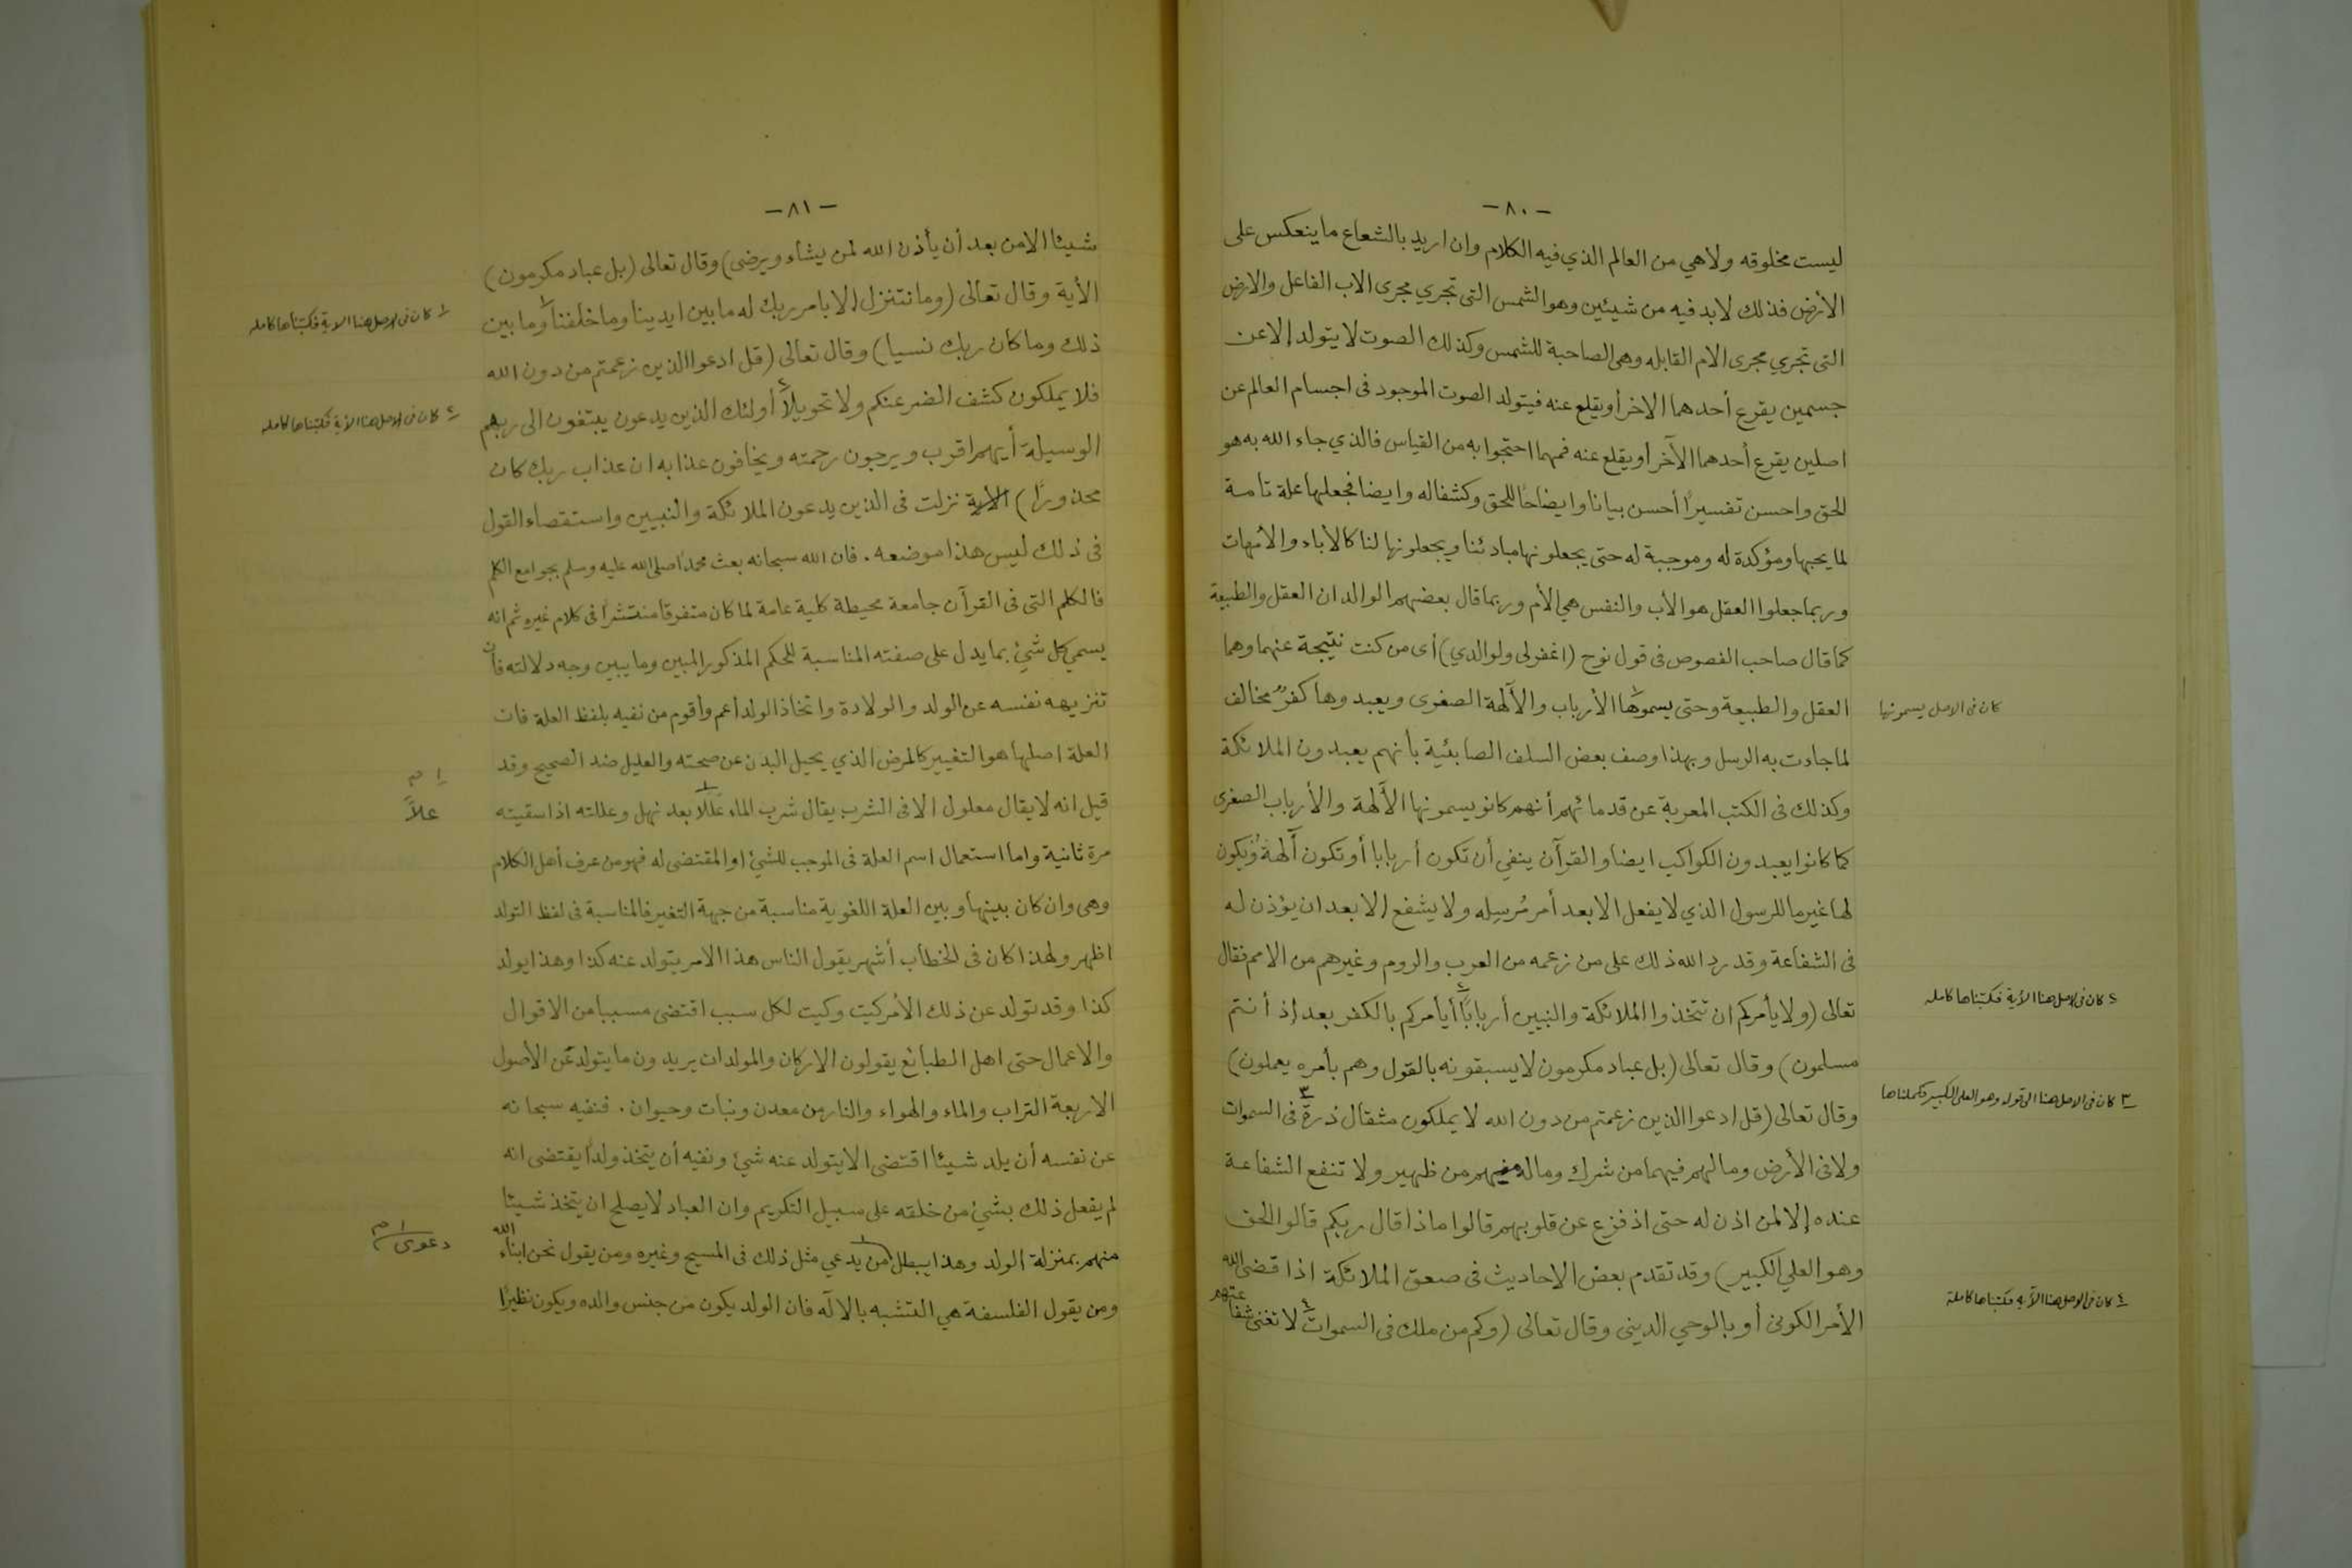 - ٨٠ -
ليست مخلوقه ولاهي من العالم الذي فيه الكلام وان اريد بالشعاع ما ينعكس على
الأرض فذلك لابد فيه من شيئين وهو الشمس التى تجري مجرى الاب الفاعل والارض
التى تجري مجرى الام القابله وهى الصاحبة للشمس وكذلك الصوت لا يتولد إلا عن
جسمين يقرع أحدهما الاخر أو يقلع عنه فيتولد الصوت الموجود فى اجسام العالم عن
اصلين يقرع أحدهما الآخر أو يقلع عنه فمهما احتجوا به من القياس فالذي جاء الله به هو
الحق واحسن تفسيرًا أحسن بيانا وايضاحًا للحق وكشفا له وايضا فجعلها علة تامة
لما يحبها ومؤكدة له وموجبة له حتى يجعلونها مبادئنا ويجعلونها لنا كالأباء والأمهات
وربما جعلوا العقل هو الأب والنفس هي الأم وربما قال بعضهم الوالدان العقل والطبيعة
كما قال صاحب الفصوص فى قول نوح (اغفرلى ولوالدي) أى من كنت نتيجة عنهما وهما
العقل والطبيعة وحتى يسموها١ الأرباب والآلهة الصغرى ويعبدوها كفرٌ مخالف
كان فى الاصل يسمونها
لما جاءت به الرسل وبهذا وصف بعض السلف الصابئية بأنهم يعبدون الملائكة
وكذلك فى الكتب المعربة عن قدمائهم أنهم كانو يسمونها الآلهة والأرباب الصغرى
كما كانوا يعبدون الكواكب ايضا والقرآن ينفي أن تكون أربابا أو تكون آلهة ويكون
لها غير ما للرسول الذي لا يفعل الا بعد أمر مُرسِله ولا يشفع إلا بعد ان يؤذن له
فى الشفاعة وقد رد الله ذلك على من زعمه من العرب والروم وغيرهم من الامم فقال
تعالى (ولا يأمركم ان تتخذوا الملائكة والنبيين أربابًا٢ أيأمركم بالكفر بعد إذ أنتم
٢ كان فى الاصل هنا الأية فكتبناها كامله
مسلمون) وقال تعالى (بل عباد مكرمون لا يسبقونه بالقول وهم بأمره يعملون)
وقال تعالى (قل ادعوا الذين زعمتم من دون الله لا يملكون مثقال ذرة٣ فى السموات
٣ كان فى الاصل هنا الى قوله وهو العلى الكبير فكملناها
ولا فى الأرض ومالهم فيهما من شرك وماله منهم من ظهير ولا تنفع الشفاعة
عنده إلا لمن اذن له حتى اذ فزع عن قلوبهم قالوا ماذا قال ربكم قالوا الحق
وهو العلي الكبير) وقد تقدم بعض الاحاديث فى صعق الملائكة اذا قضى الله
الأمر الكونى أو بالوحي الدينى وقال تعالى (وكم من ملك فى السموات٤ لا تغنى شفاعتهم
٤ كان فى الاصل هنا الآية فكتبناها كاملة
- ٨١ -
شيئا الا من بعد أن يأذن الله لمن يشاء ويرضى) وقال تعالى (بل عباد مكرمون)
الأية وقال تعالى (وما نتنزل إلا بامر ربك له ما بين ايدينا وما خلفنا١ وما بين
١ كان فى الاصل هنا الاية فكتبناها كامله
ذلك وما كان ربك نسيا) وقال تعالى (قل ادعوا الذين زعمتم من دون الله
فلا يملكون كشف الضر عنكم ولا تحويلاً٢ أولئك الذين يدعون يبتغون الى ربهم
٢ كان فى الاصل هنا الأية فكتبناها كامله
الوسيلة أيهم اقرب ويرجون رحمته ويخافون عذابه ان عذاب ربك كان
محذورًا) الاية نزلت فى الذين يدعون الملائكة والنبيين واستقصاء القول
فى ذلك ليس هذا موضعه . فان الله سبحانه بعث محمدا صلى الله عليه وسلم بجوامع الكلم
فالكلم التى فى القرآن جامعة محيطة كلية عامة لما كان متفرقا منتشرًا فى كلام غيره ثم انه
يسمي كل شئ بما يدل على صفته المناسبة للحكم المذكور المبين وما يبين وجه دلالته فأن
تنزيهه نفسه عن الولد والولادة واتخاذ الولد أعم وأقوم من نفيه بلفظ العلة فان
العلة اصلها هو التغيير كالمرض الذي يحيل البدن عن صحته والعليل ضد الصحيح وقد
قيل انه لا يقال معلول الا فى الشرب يقال شرب الماء عَلَلاً١ بعد نهل وعللته اذا سقيته
١ م
علاًّ
مرة ثانية واما استعمال اسم العلة فى الموجب للشئ او المقتضى له فهو من عرف أهل الكلام
وهى وان كان بينها وبين العلة اللغوية مناسبة من جهة التغير فالمناسبة فى لفظ التولد
اظهر ولهذا كان فى الخطاب أشهر يقول الناس هذا الامر يتولد عنه كذا وهذا يولد
كذا وقد تولد عن ذلك الأمر كيت وكيت لكل سبب اقتضى مسببا من الاقوال
والاعمال حتى اهل الطبائع يقولون الاركان والمولدات يريدون ما يتولد عن الأصول
الاربعة التراب والماء والهواء والنار من معدن ونبات وحيوان . فنفيه سبحانه
عن نفسه أن يلد شيئا اقتضى الا يتولد عنه شئ ونفيه أن يتخذ ولدًا يقتضى انه
لم يفعل ذلك بشئ من خلقه على سبيل التكريم وان العباد لا يصلح ان يتخذ شيئا
منهم بمنزلة الولد وهذا يبطل١ من يدعي مثل ذلك فى المسيح وغيره ومن يقول نحن ابناء الله
١ م
دعوى
ومن يقول الفلسفة هي التشبه بالاله فان الولد يكون من جنس والده ويكون نظيرًا